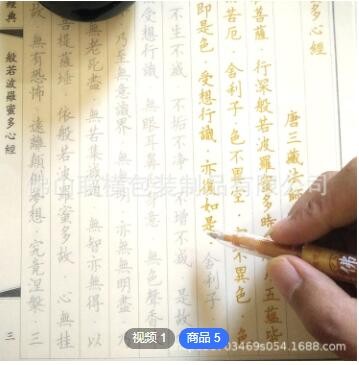 多心經
唐三藏法師
菩薩·行深般若波羅蜜多時 五蘊皆
苦厄·舍利子·色不異空· 不異色·色
即是色·受想行識·亦復如是·舍利子·
不生不滅·不垢不淨 不增不減·是故
受想行識·無眼耳鼻 意·無色聲香
乃至無意識界· 無明·亦無無明盡·
無老死盡·無苦集 無智亦無得·以
菩提薩埵·依般若波羅蜜多故·心無挂
無有恐怖·遠離顛倒夢想·究竟涅槃·三
經典
般若波羅蜜多心經
三
佛
包装制品有限公司
视频 1
商品 5
03469s054.1688.com